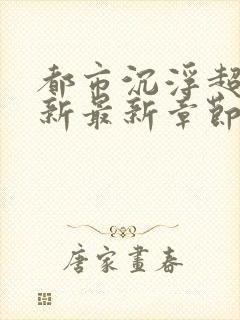 都市沉浮超
新最新章節
唐家畫春